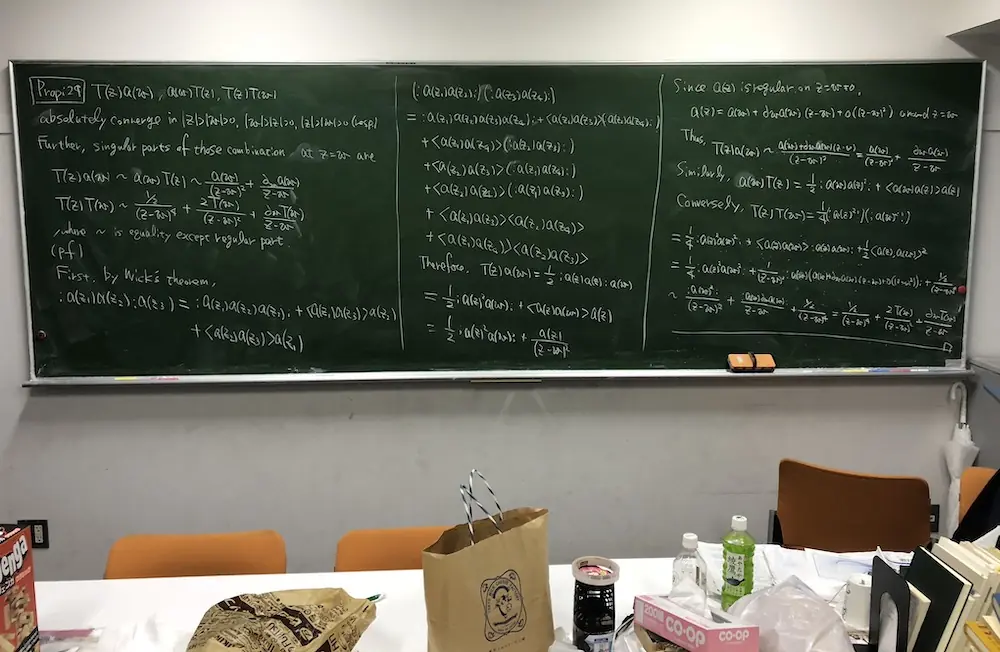 Prop 29 T(z)a(w), a(w)T(z), T(z)T(w)
absolutely converge in |z|>|w|>0, |w|>|z|>0, |z|>|w|>0 (resp)
Further, singular parts of those combination at z=w are
T(z)a(w) ~ a(w)T(z) ~ a(w)/(z-w)² + ∂wa(w)/(z-w)
T(z)T(w) ~ ½/(z-w)⁴ + 2T(w)/(z-w)² + ∂wT(w)/(z-w)
, where ~ is equality except regular part
(pf)
First, by Wick's theorem,
:a(z₁)a(z₂):a(z₃) = :a(z₁)a(z₂)a(z₃): + <a(z₁)a(z₃)>a(z₂)
+ <a(z₂)a(z₃)>a(z₁)
(:a(z₁)a(z₂):)(:a(z₃)a(z₄):)
= :a(z₁)a(z₂)a(z₃)a(z₄): + <a(z₁)a(z₃)>(:a(z₂)a(z₄):)
+ <a(z₁)a(z₄)>(:a(z₂)a(z₃):)
+ <a(z₂)a(z₃)>(:a(z₁)a(z₄):)
+ <a(z₂)a(z₄)>(:a(z₁)a(z₃):)
+ <a(z₁)a(z₃)><a(z₂)a(z₄)>
+ <a(z₁)a(z₄)><a(z₂)a(z₃)>
Therefore, T(z)a(w) = ½ :a(z)a(z): a(w)
= ½ :a(z)²a(w): + <a(z)a(w)>a(z)
= ½ :a(z)²a(w): + a(z)/(z-w)²
Since a(z) is regular on z=w≠0,
a(z) = a(w) + ∂wa(w)(z-w) + o((z-w)²) around z=w
Thus, T(z)a(w) ~ a(w)+∂wa(w)(z-w)/(z-w)² = a(w)/(z-w)² + ∂wa(w)/(z-w)
Similarly, a(w)T(z) = ½ :a(w)a(z)²: + <a(w)a(z)>a(z)
Conversely, T(z)T(w) = ¼(:a(z)²:)(:a(w)²:)
= ¼ :a(z)²a(w)²: + <a(z)a(w)> :a(z)a(w): + ½<a(z)a(w)>²
= ¼ :a(z)²a(w)²: + 1/(z-w)² :a(w)(a(w)+∂wa(w)(z-w)+o((z-w)²)): + ½/(z-w)⁴
~ :a(w)²:/(z-w)² + :a(w)∂wa(w):/(z-w) + ½/(z-w)⁴ = ½/(z-w)⁴ + 2T(w)/(z-w)² + ∂wT(w)/(z-w)
□
enga
200
CO-OP
CO-OP
綾鷹